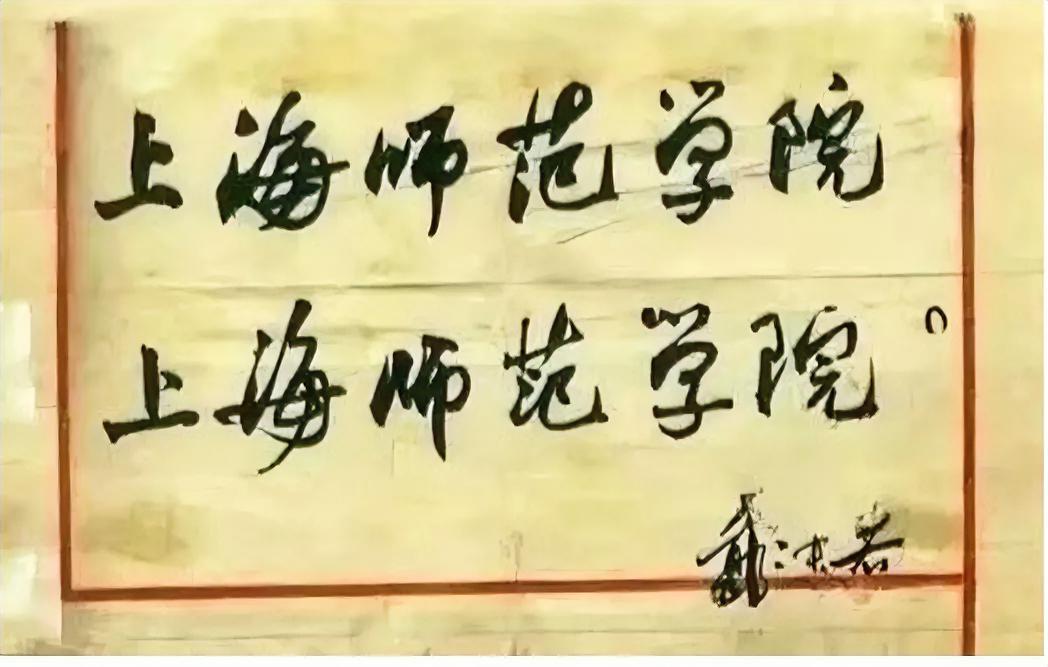 上海师范学院
上海师范学院。
郭沫若